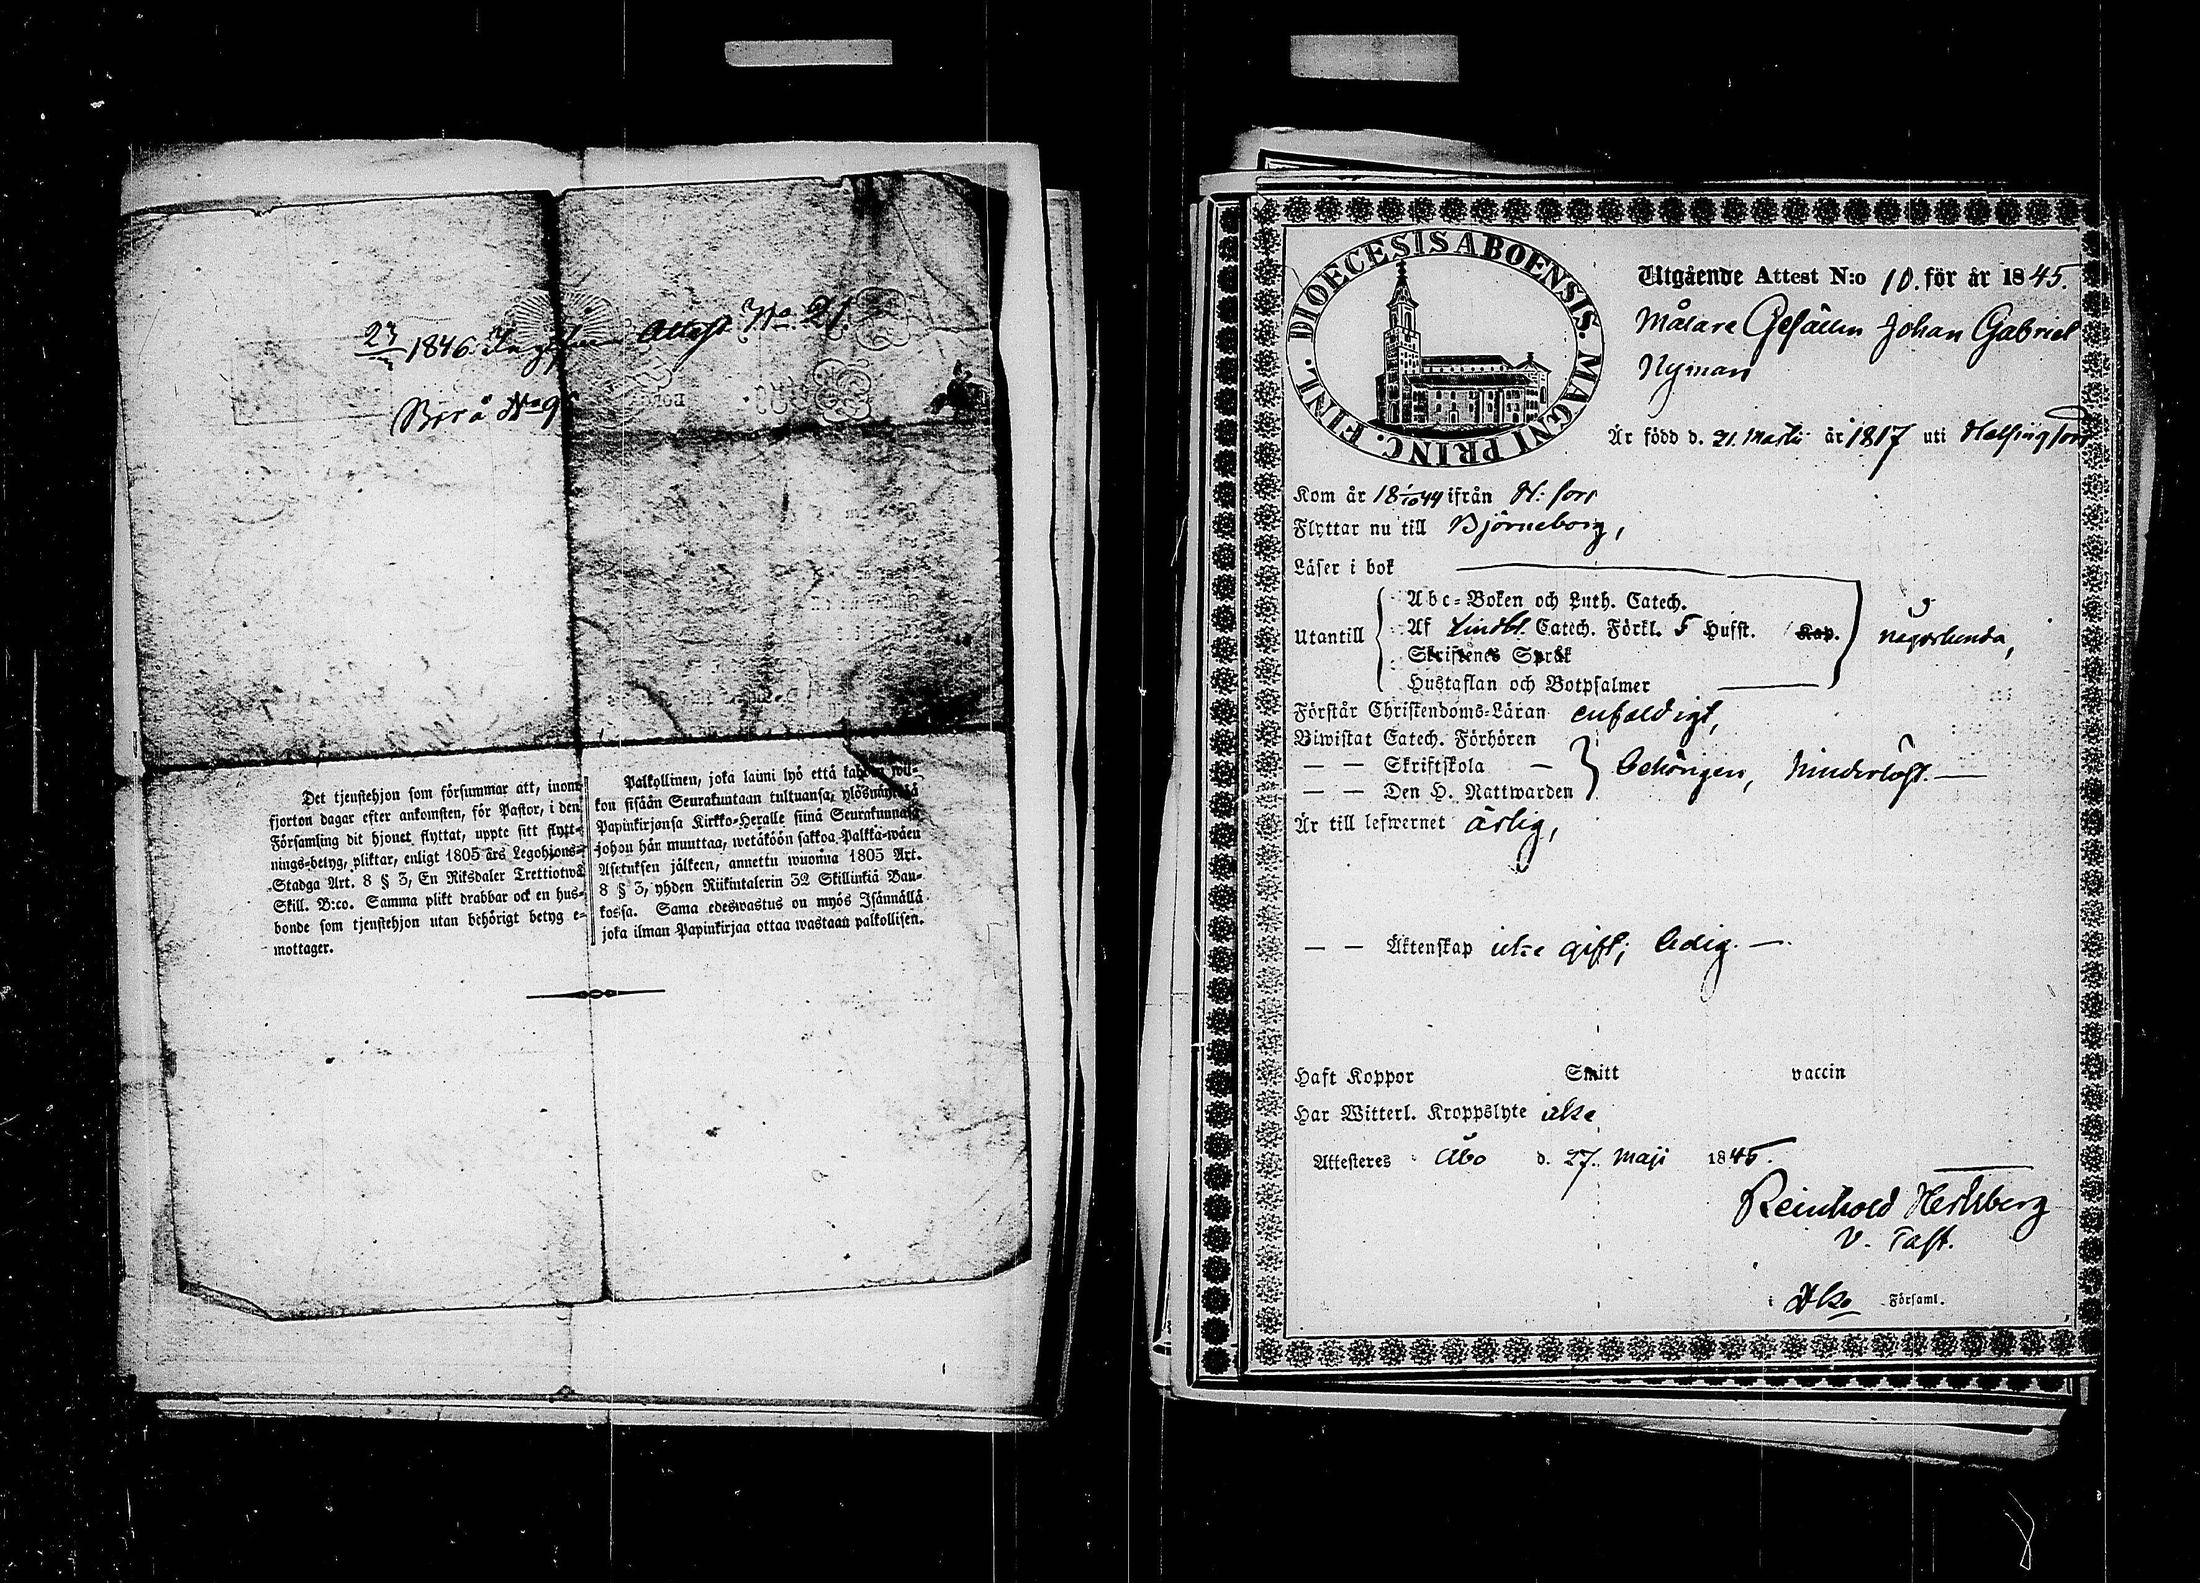 23 1846. Attest No 21.
No 9
Det tjenstehjon som försummar att, inom
fjorton dagar efter ankomsten, för Pastor, i den
Församling dit hjonet flyttat, uppte sitt flytt-
nings-betyg, pliktar, enligt 1805 års Legohjons-
Stadga Art. 8 § 3, En Riksdaler Trettiotwå
Skill. B:co. Samma plikt drabbar ock en hus-
bonde som tjenstehjon utan behörigt betyg e-
mottager.
Palkollinen, joka laimi lyö että kahden wii-
kon sisään Seurakuntaan tultuansa, ylösnäyttää
Papinkirjansa Kirkko-Herralle siinä Seurakunnasa
johon hän muuttaa, wetäköön sakkoa Palkka-wäen
Asetuksen jälkeen, annettu wuonna 1805 Art.
8 § 3, yhden Riikintalerin 32 Skillinkiä Ban-
kossa. Sama edeswastus on myös Isännällä
joka ilman Papinkirjaa ottaa wastaan palkollisen.
DIOECESIS ABOENSIS. MAGNI PRINC. FINL.
Utgående Attest N:o 10. för år 1845.
Målare Gesällen Johan Gabriel
Nyman
Är född d. 21. Martii år 1817 uti Helsingfors
Kom år 18 1/10 44 ifrån H:fors
Flyttar nu till Björneborg,
Läser i bok
Abc-Boken och Luth. Catech.
Utantill Af Lindbl. Catech. Förkl. 5 Hufst. Kap. någorlunda,
Skriftenes Språk
Hustaflan och Botpsalmer
Förstår Christendoms-Läran enfaldigt,
Biwistat Catech. Förhören
— — Skriftskola — behörigen, hinderlöst. —
— — Den H. Nattwarden
Är till lefwernet ärlig,
— — Äktenskap icke gift; ledig. —
Haft Koppor Smitt vaccin
Har Witterl. Kroppslyte icke
Attesteres Åbo d. 27. Maji 1845.
Reinhold Hertzberg
V. Past.
i Församl.